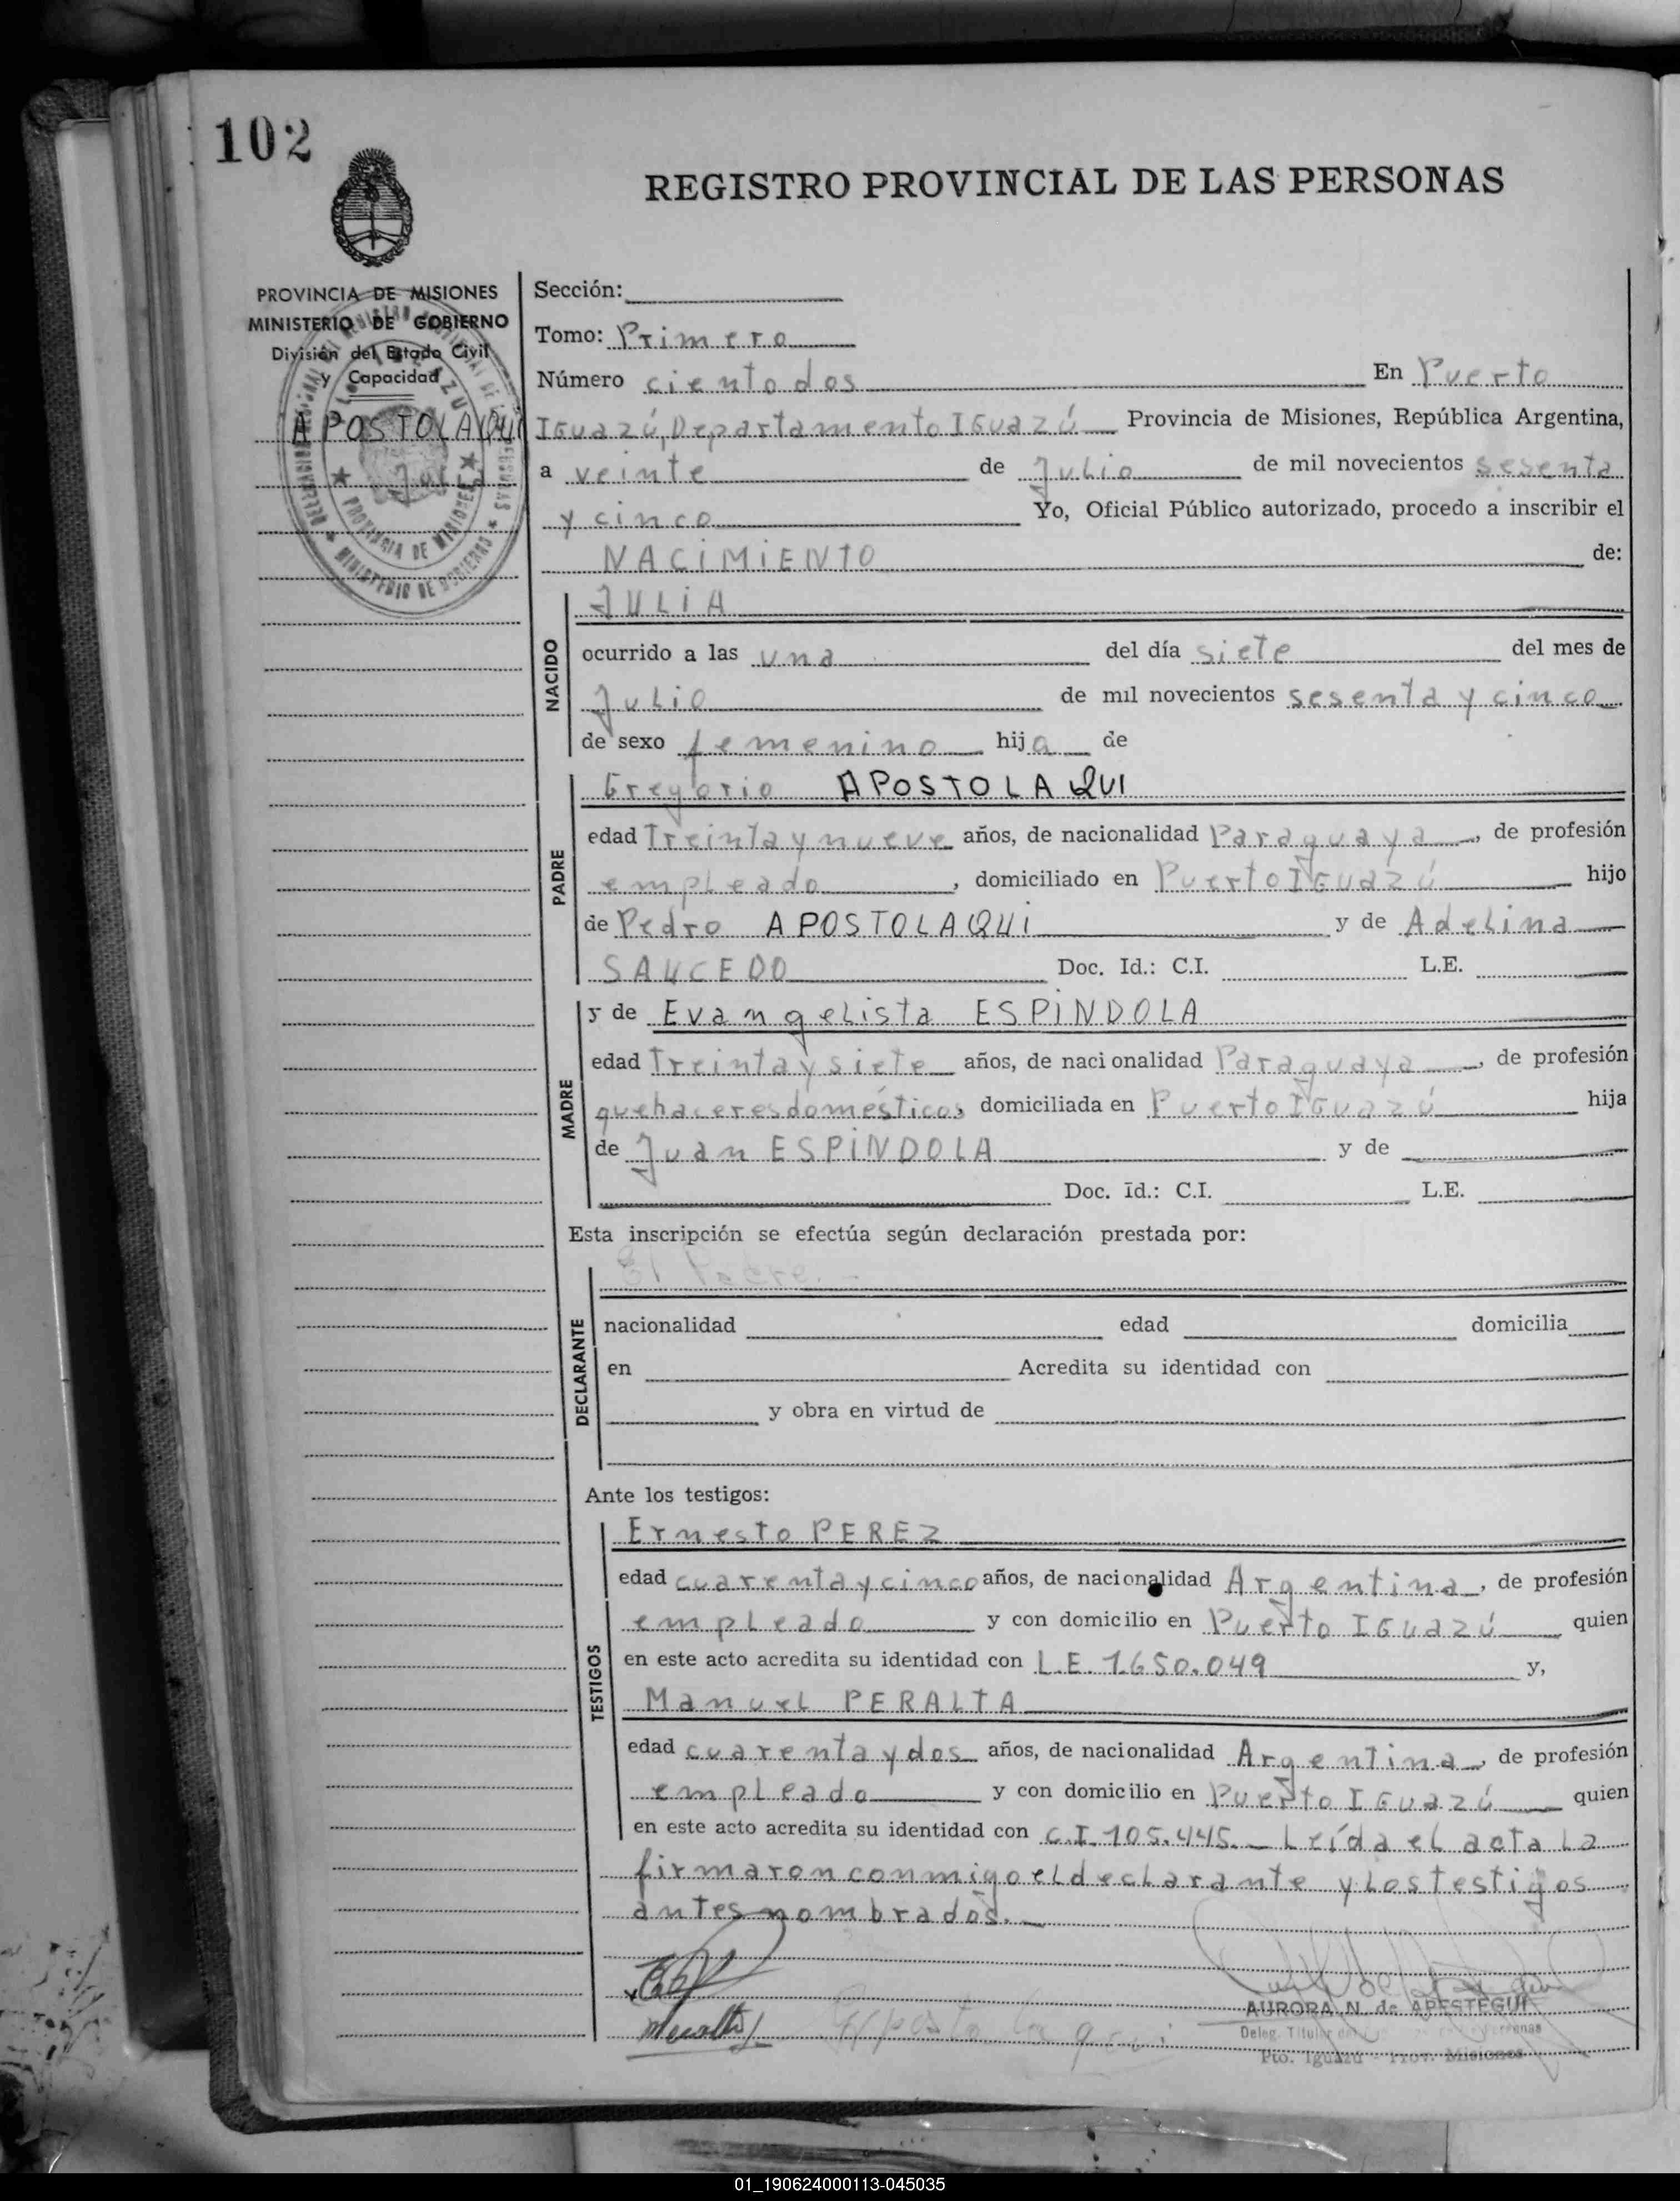 102
REGISTRO PROVINCIAL DE LAS PERSONAS
PROVINCIA DE MISIONES
MINISTERIO DE GOBIERNO
División del Estado Civil
y Capacidad
APOSTOLAQUI
Julia
Sección:
Tomo: Primero
Número ciento dos En Puerto
IGuazú, Departamento IGuazú Provincia de Misiones, República Argentina,
a veinte de Julio de mil novecientos sesenta
y cinco Yo, Oficial Público autorizado, procedo a inscribir el
NACIMIENTO de:
NACIDO
JULIA
ocurrido a las una del día siete del mes de
Julio de mil novecientos sesenta y cinco
de sexo femenino hija de
PADRE
Gregorio APOSTOLAQUI
edad Treinta y nueve años, de nacionalidad Paraguaya, de profesión
empleado, domiciliado en Puerto IGuazú hijo
de Pedro APOSTOLAQUI y de Adelina
SAUCEDO Doc. Id.: C.I. L.E.
MADRE
y de Evangelista ESPINDOLA
edad Treinta y siete años, de naci onalidad Paraguaya, de profesión
quehaceres domésticos, domiciliada en Puerto IGuazú hija
de Juan ESPINDOLA y de
Doc. Id.: C.I. L.E.
Esta inscripción se efectúa según declaración prestada por:
DECLARANTE
El Padre.-
nacionalidad edad domicilia
en Acredita su identidad con
y obra en virtud de
Ante los testigos:
TESTIGOS
Ernesto PEREZ
edad cuarenta y cinco años, de nacionalidad Argentina, de profesión
empleado y con domicilio en Puerto IGuazú quien
en este acto acredita su identidad con L.E. 1.650.049 y,
Manuel PERALTA
edad cuarenta y dos años, de nacionalidad Argentina, de profesión
empleado y con domicilio en Puerto IGuazú quien
en este acto acredita su identidad con C.I. 105.445.- Leída el acta la
firmaron conmigo el declarante y los testigos
antes nombrados.-
AURORA N. de APESTEGUI
Deleg. Titular del Personas
Pto. Iguazú - Prov. Misiones
01_190624000113-045035